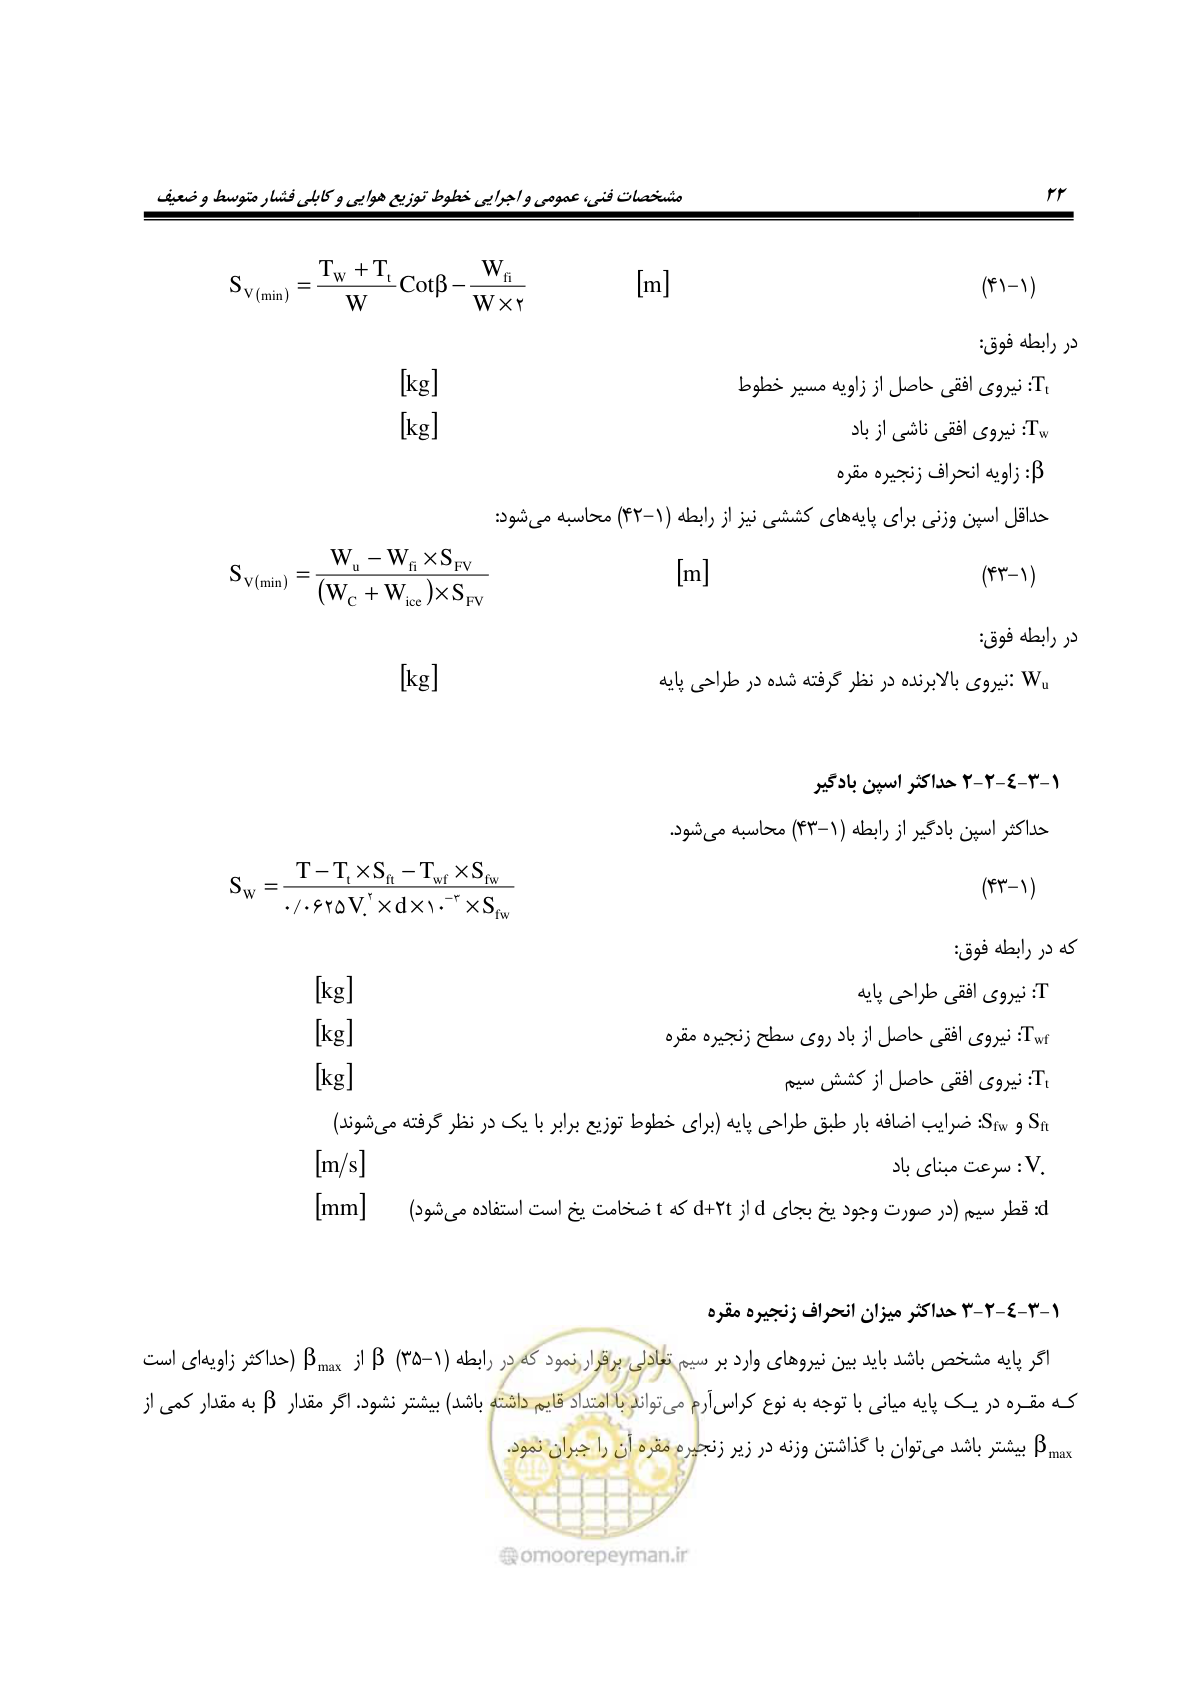 ۲۲ مشخصات فنی، عمومی و اجرایی خطوط توزیع هوایی و کابلی فشار متوسط و ضعیف
(۴۱-۱) [m] S_V(min) = (T_W + T_t)/W Cotβ − W_fi/(W × ۲)
در رابطه فوق:
T_t: نیروی افقی حاصل از زاویه مسیر خطوط [kg]
T_w: نیروی افقی ناشی از باد [kg]
β: زاویه انحراف زنجیره مقره
حداقل اسپن وزنی برای پایه‌های کششی نیز از رابطه (۴۲-۱) محاسبه می‌شود:
(۴۳-۱) [m] S_V(min) = (W_u − W_fi × S_FV)/((W_C + W_ice) × S_FV)
در رابطه فوق:
W_u :نیروی بالابرنده در نظر گرفته شده در طراحی پایه [kg]
۱-۳-٤-۲-۲ حداکثر اسپن بادگیر
حداکثر اسپن بادگیر از رابطه (۴۳-۱) محاسبه می‌شود.
(۴۳-۱) S_W = (T − T_t × S_ft − T_wf × S_fw)/(۰/۰۶۲۵ V_۰^۲ × d × ۱۰^−۳ × S_fw)
که در رابطه فوق:
T: نیروی افقی طراحی پایه [kg]
T_wf: نیروی افقی حاصل از باد روی سطح زنجیره مقره [kg]
T_t: نیروی افقی حاصل از کشش سیم [kg]
S_ft و S_fw: ضرایب اضافه بار طبق طراحی پایه (برای خطوط توزیع برابر با یک در نظر گرفته می‌شوند)
V_۰ : سرعت مبنای باد [m/s]
d: قطر سیم (در صورت وجود یخ بجای d از d+۲t که t ضخامت یخ است استفاده می‌شود) [mm]
۱-۳-٤-۲-۳ حداکثر میزان انحراف زنجیره مقره
اگر پایه مشخص باشد باید بین نیروهای وارد بر سیم تعادلی برقرار نمود که در رابطه (۳۵-۱) β از β_max (حداکثر زاویه‌ای است
که مقره در یک پایه میانی با توجه به نوع کراس‌آرم می‌تواند با امتداد قایم داشته باشد) بیشتر نشود. اگر مقدار β به مقدار کمی از
β_max بیشتر باشد می‌توان با گذاشتن وزنه در زیر زنجیره مقره آن را جبران نمود.
امور پیمان
@omoorepeyman.ir